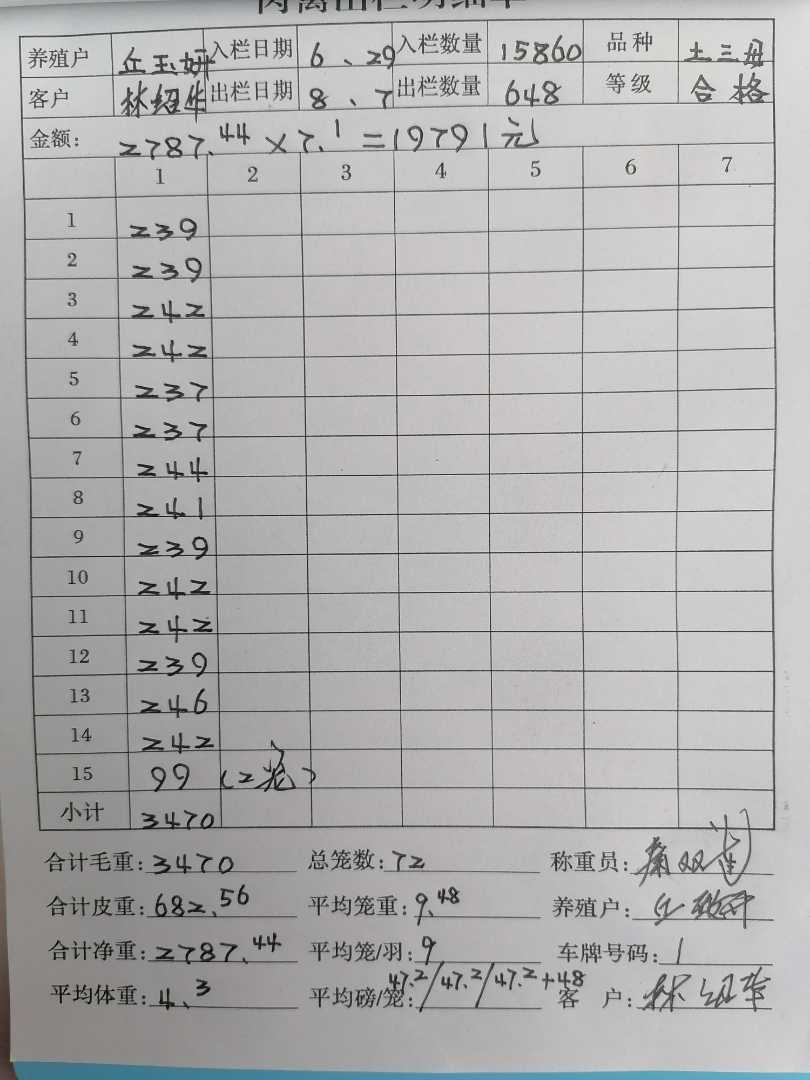 肉禽出栏明细单
养殖户 丘玉妍 入栏日期 6、29 入栏数量 15860 品种 土三母
客户 林绍华 出栏日期 8、7 出栏数量 648 等级 合格
金额: 2787.44×7.1=19791元
1 2 3 4 5 6 7
1 239
2 239
3 242
4 242
5 237
6 237
7 244
8 241
9 239
10 242
11 242
12 239
13 246
14 242
15 99 (2笼)
小计 3470
合计毛重: 3470 总笼数: 72 称重员:
合计皮重: 682.56 平均笼重: 9.48 养殖户: 丘
合计净重: 2787.44 平均笼/羽: 9 车牌号码: 1
平均体重: 4.3 平均磅/笼: 47.2/47.2/47.2+48 客 户: 林绍华